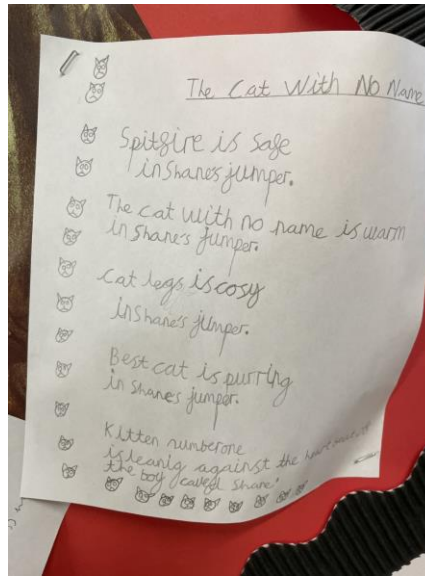 The Cat With No Name
Spitfire is safe
in Shanes jumper.
The cat with no name is warm
in Shane's jumper.
Cat legs is cosy
in Shane's jumper.
Best cat is purring
in Shane's jumper.
Kitten number one
is leanig against the heart beat of
the boy called Shane.